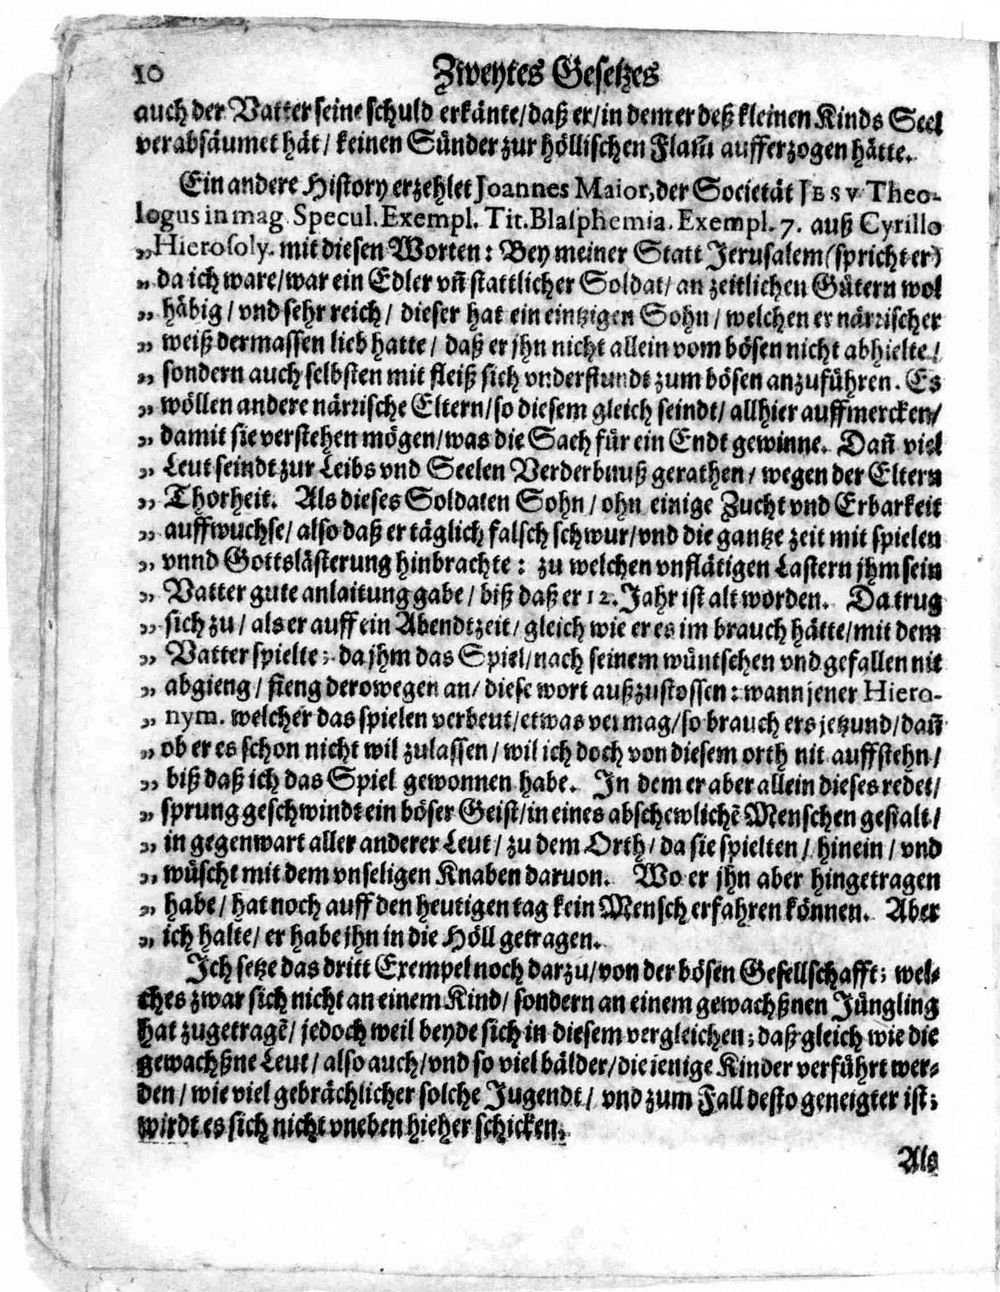 10 Zweytes Gesetzes
auch der Vatter seine schuld erkänte/daß er/in dem er deß kleinen Kinds Seel
verabsäumet hät/ keinen Sünder zur höllischen Flam̃ aufferzogen hätte.
Ein andere History erzehlet Joannes Maior, der Societät JESV Theo-
logus in mag. Specul. Exempl. Tit. Blasphemia. Exempl. 7. auß Cyrillo
„Hierosoly. mit diesen Worten: Bey meiner Statt Jerusalem (spricht er)
„ da ich ware/war ein Edler vñ stattlicher Soldat/ an zeitlichen Gütern wol
„ häbig/ vnd sehr reich/ dieser hat ein eintzigen Sohn/ welchen er närrischer
„ weiß dermassen lieb hatte/ daß er jhn nicht allein vom bösen nicht abhielte/
„ sondern auch selbsten mit fleiß sich vnderstundt zum bösen anzuführen. Es
„ wöllen andere närrische Eltern/so diesem gleich seindt/ allhier auffmercken/
„ damit sie verstehen mögen/was die Sach für ein Endt gewinne. Dañ viel
„ Leut seindt zur Leibs vnd Seelen Verderbnuß gerathen/ wegen der Eltern
„ Thorheit. Als dieses Soldaten Sohn/ ohn einige Zucht vnd Erbarkeit
„ auffwuchse/ also daß er täglich falsch schwur/vnd die gantze zeit mit spielen
„ vnnd Gottslästerung hinbrachte: zu welchen vnflätigen Lastern jhm sein
„ Vatter gute anlaitung gabe/ biß daß er 12. Jahr ist alt worden. Da trug
„ sich zu/ als er auff ein Abendtzeit/ gleich wie er es im brauch hätte/mit dem
„ Vatter spielte; da jhm das Spiel/nach seinem wüntschen vnd gefallen nit
„ abgieng/ fieng derowegen an/ diese wort außzustossen: wann jener Hiero-
„ nym. welcher das spielen verbeut/etwas vermag/so brauch ers jetzund/dañ
„ ob er es schon nicht wil zulassen/ wil ich doch von diesem orth nit auffstehn/
„ biß daß ich das Spiel gewonnen habe. In dem er aber allein dieses redet/
„ sprung geschwindt ein böser Geist/in eines abschewlichẽ Menschen gestalt/
„ in gegenwart aller anderer Leut/ zu dem Orth/ da sie spielten/ hinein/ vnd
„ wüscht mit dem vnseligen Knaben daruon. Wo er jhn aber hingetragen
„ habe/ hat noch auff den heutigen tag kein Mensch erfahren können. Aber
„ ich halte/ er habe jhn in die Höll getragen.
Ich setze das dritt Exempel noch darzu/von der bösen Gesellschafft; wel-
ches zwar sich nicht an einem Kind/ sondern an einem gewachßnen Jüngling
hat zugetragẽ/ jedoch weil beyde sich in diesem vergleichen; daß gleich wie die
gewachßne Leut/ also auch/vnd so viel bälder/die jenige Kinder verführt wer-
den/ wie viel gebrächlicher solche Jugendt/ vnd zum Fall desto geneigter ist;
wirdt es sich nicht vneben hieher schicken.
Als